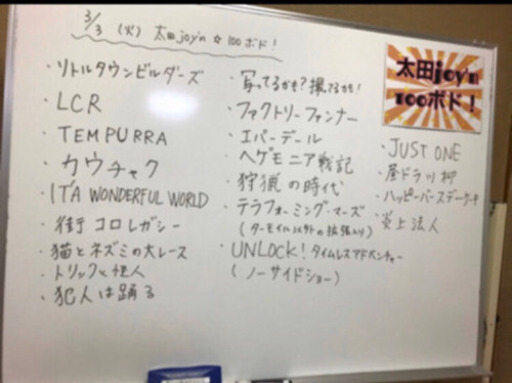 3/3 (火) 太田joy'n☆100ボド!
・リトルタウンビルダーズ
・LCR
・TEMPURRA
・カウチャク
・IT'A WONDERFUL WORLD
・街コロレガシー
・猫とネズミの大レース
・トリックと怪人
・犯人は踊る
・写ってるかも?撮てるかも!
・ファクトリーファンナー
・エバーデール
・ヘゲモニア戦記
・狩猟の時代
・テラフォーミング・マーズ
(ターモイル以外の拡張入り)
・UNLOCK!タイムレスアドベンチャー
(ノーサイドショー)
太田joy'n
100ボド!
・JUST ONE
・昼ドラ川柳
・ハッピーバースデーケーキ
・炎上法人